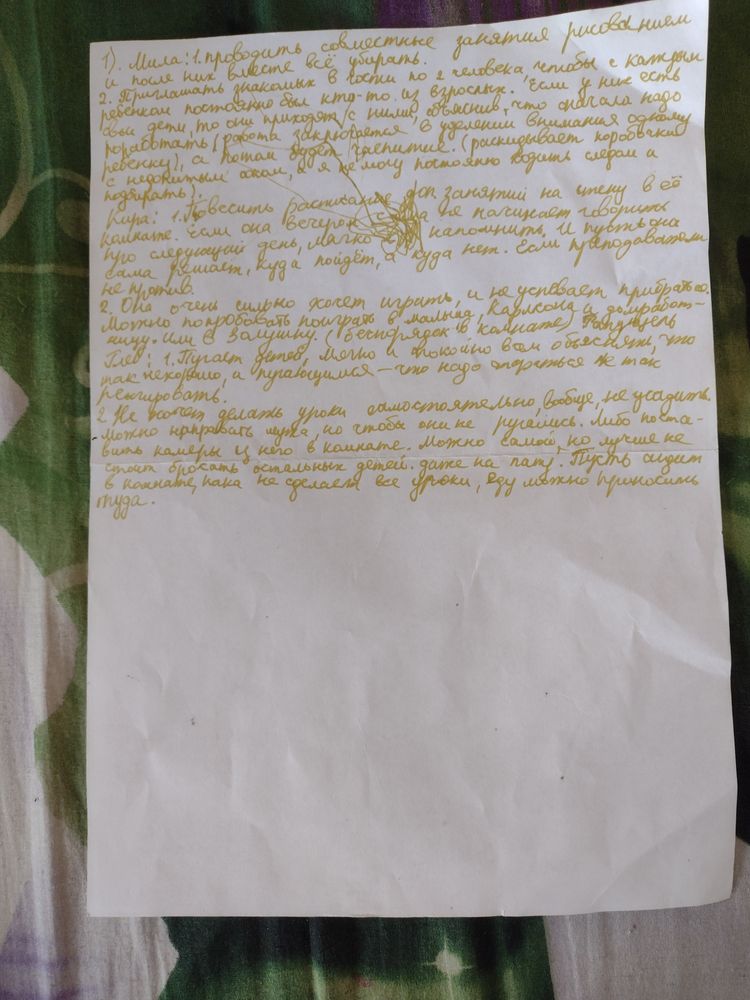 1). Мила: 1. проводить совместные занятия рисованием
и после них вместе всё убирать.
2. Приглашать знакомых в гости по 2 человека, чтобы с каждым
ребёнком постоянно был кто-то из взрослых. Если у них есть
свои дети, то они приходят с ними, объяснив, что сначала надо
поработать (работа заключается в уделении внимания одному
ребёнку), а потом будет чаепитие. (раскидывает коробочки
с недопитым соком, а я не могу постоянно ходить следом и
подбирать).
Кира: 1. Повесить расписание занятий на стену в её
комнате. Если она вечером не начинает говорить
про следующий день, мягко напомнить. И пусть она
сама решает, куда пойдёт, а куда нет. Если преподаватели
не против.
2. Она очень сильно хочет играть, и не успевает прибраться.
Можно попробовать поиграть в малыша, Карлсона и домработ-
ницу. или в Золушку. (Беспорядок в комнате)
Глеб: 1. Пугает детей, мягко и спокойно всем объяснять, что
так нехорошо, а пугающимся - что надо стараться не так
реагировать.
2. Не хочет делать уроки самостоятельно, вообще, не усадить.
Можно направить мужа, но чтобы они не ругались. Либо поста-
вить камеры у него в комнате. Можно самой, но лучше не
стоит бросать остальных детей. даже на папу. Пусть сидит
в комнате, пока не сделает все уроки, еду можно приносить
туда.